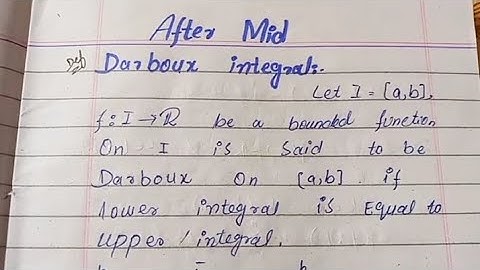 After Mid
Def Darboux integral:.
Let I = [a,b],
f: I → R be a bounded function
On I is said to be
Darboux on [a,b] if
lower integral is Equal to
upper integral.